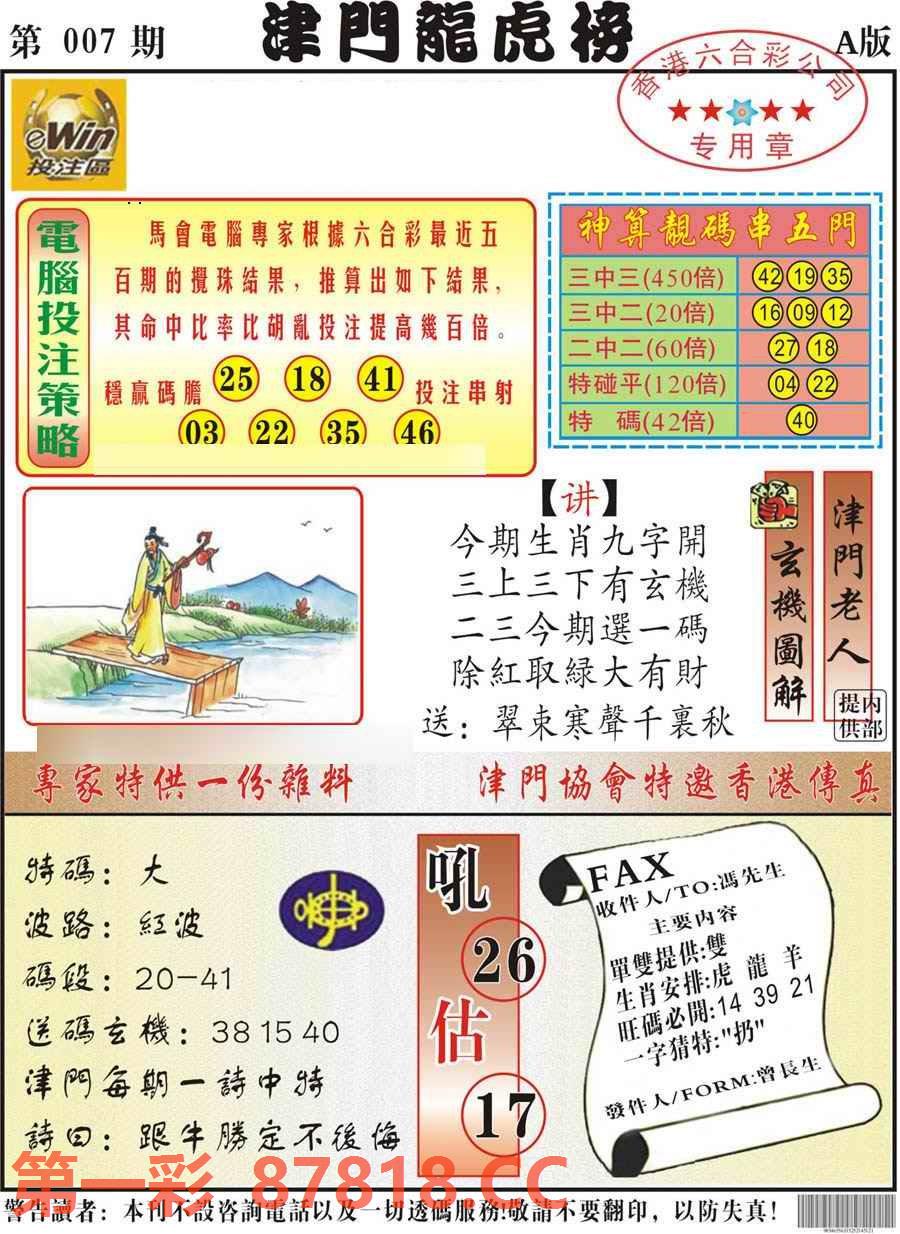 第 007 期
津門龍虎榜
A版
香港六合彩公司
专用章
eWin
投注區
電腦投注策略
馬會電腦專家根據六合彩最近五
百期的攪珠結果，推算出如下結果，
其命中比率比胡亂投注提高幾百倍。
穩贏碼膽 25 18 41 投注串射
03 22 35 46
神算靚碼串五門
三中三(450倍) 42 19 35
三中二(20倍) 16 09 12
二中二(60倍) 27 18
特碰平(120倍) 04 22
特 碼(42倍) 40
【讲】
今期生肖九字開
三上三下有玄機
二三今期選一碼
除紅取緑大有財
送：翠束寒聲千裏秋
玄機圖解
津門老人
内部提供
專家特供一份雜料
津門協會特邀香港傳真
特碼：大
波路：紅波
碼段：20-41
送碼玄機：38 15 40
津門每期一詩中特
詩曰：跟牛勝定不後悔
吼
26
估
17
FAX
收件人/TO:馮先生
主要内容
單雙提供:雙
生肖安排:虎 龍 羊
旺碼必開:14 39 21
一字猜特:"扔"
發件人/FORM:曾長生
第一彩 87818.CC
警告讀者：本刊不設咨詢電話以及一切透碼服務!敬請不要翻印，以防失真!